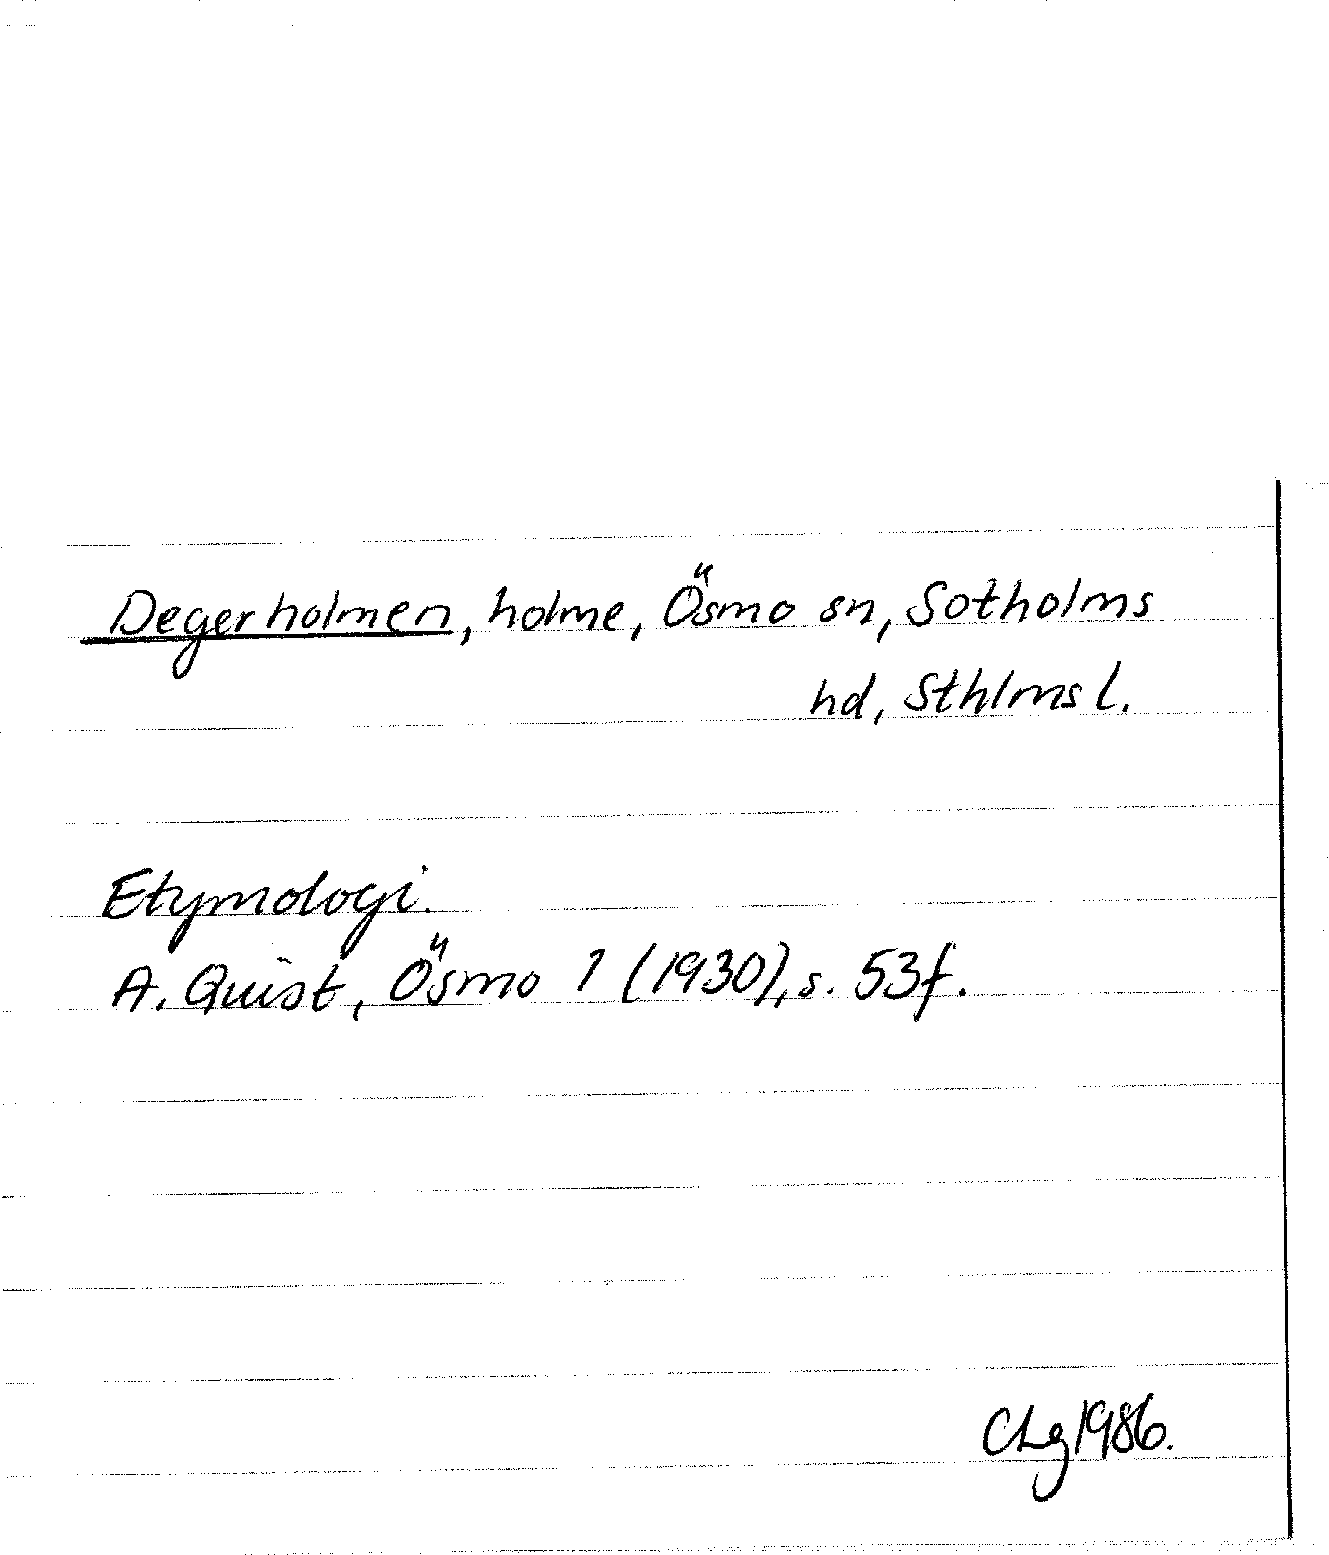 Degerholmen, holme, Ösmo sn, Sotholms
hd, Sthlms l.
Etymologi.
A. Quist, Ösmo 1 (1930), s. 53f.
CLg 1986.